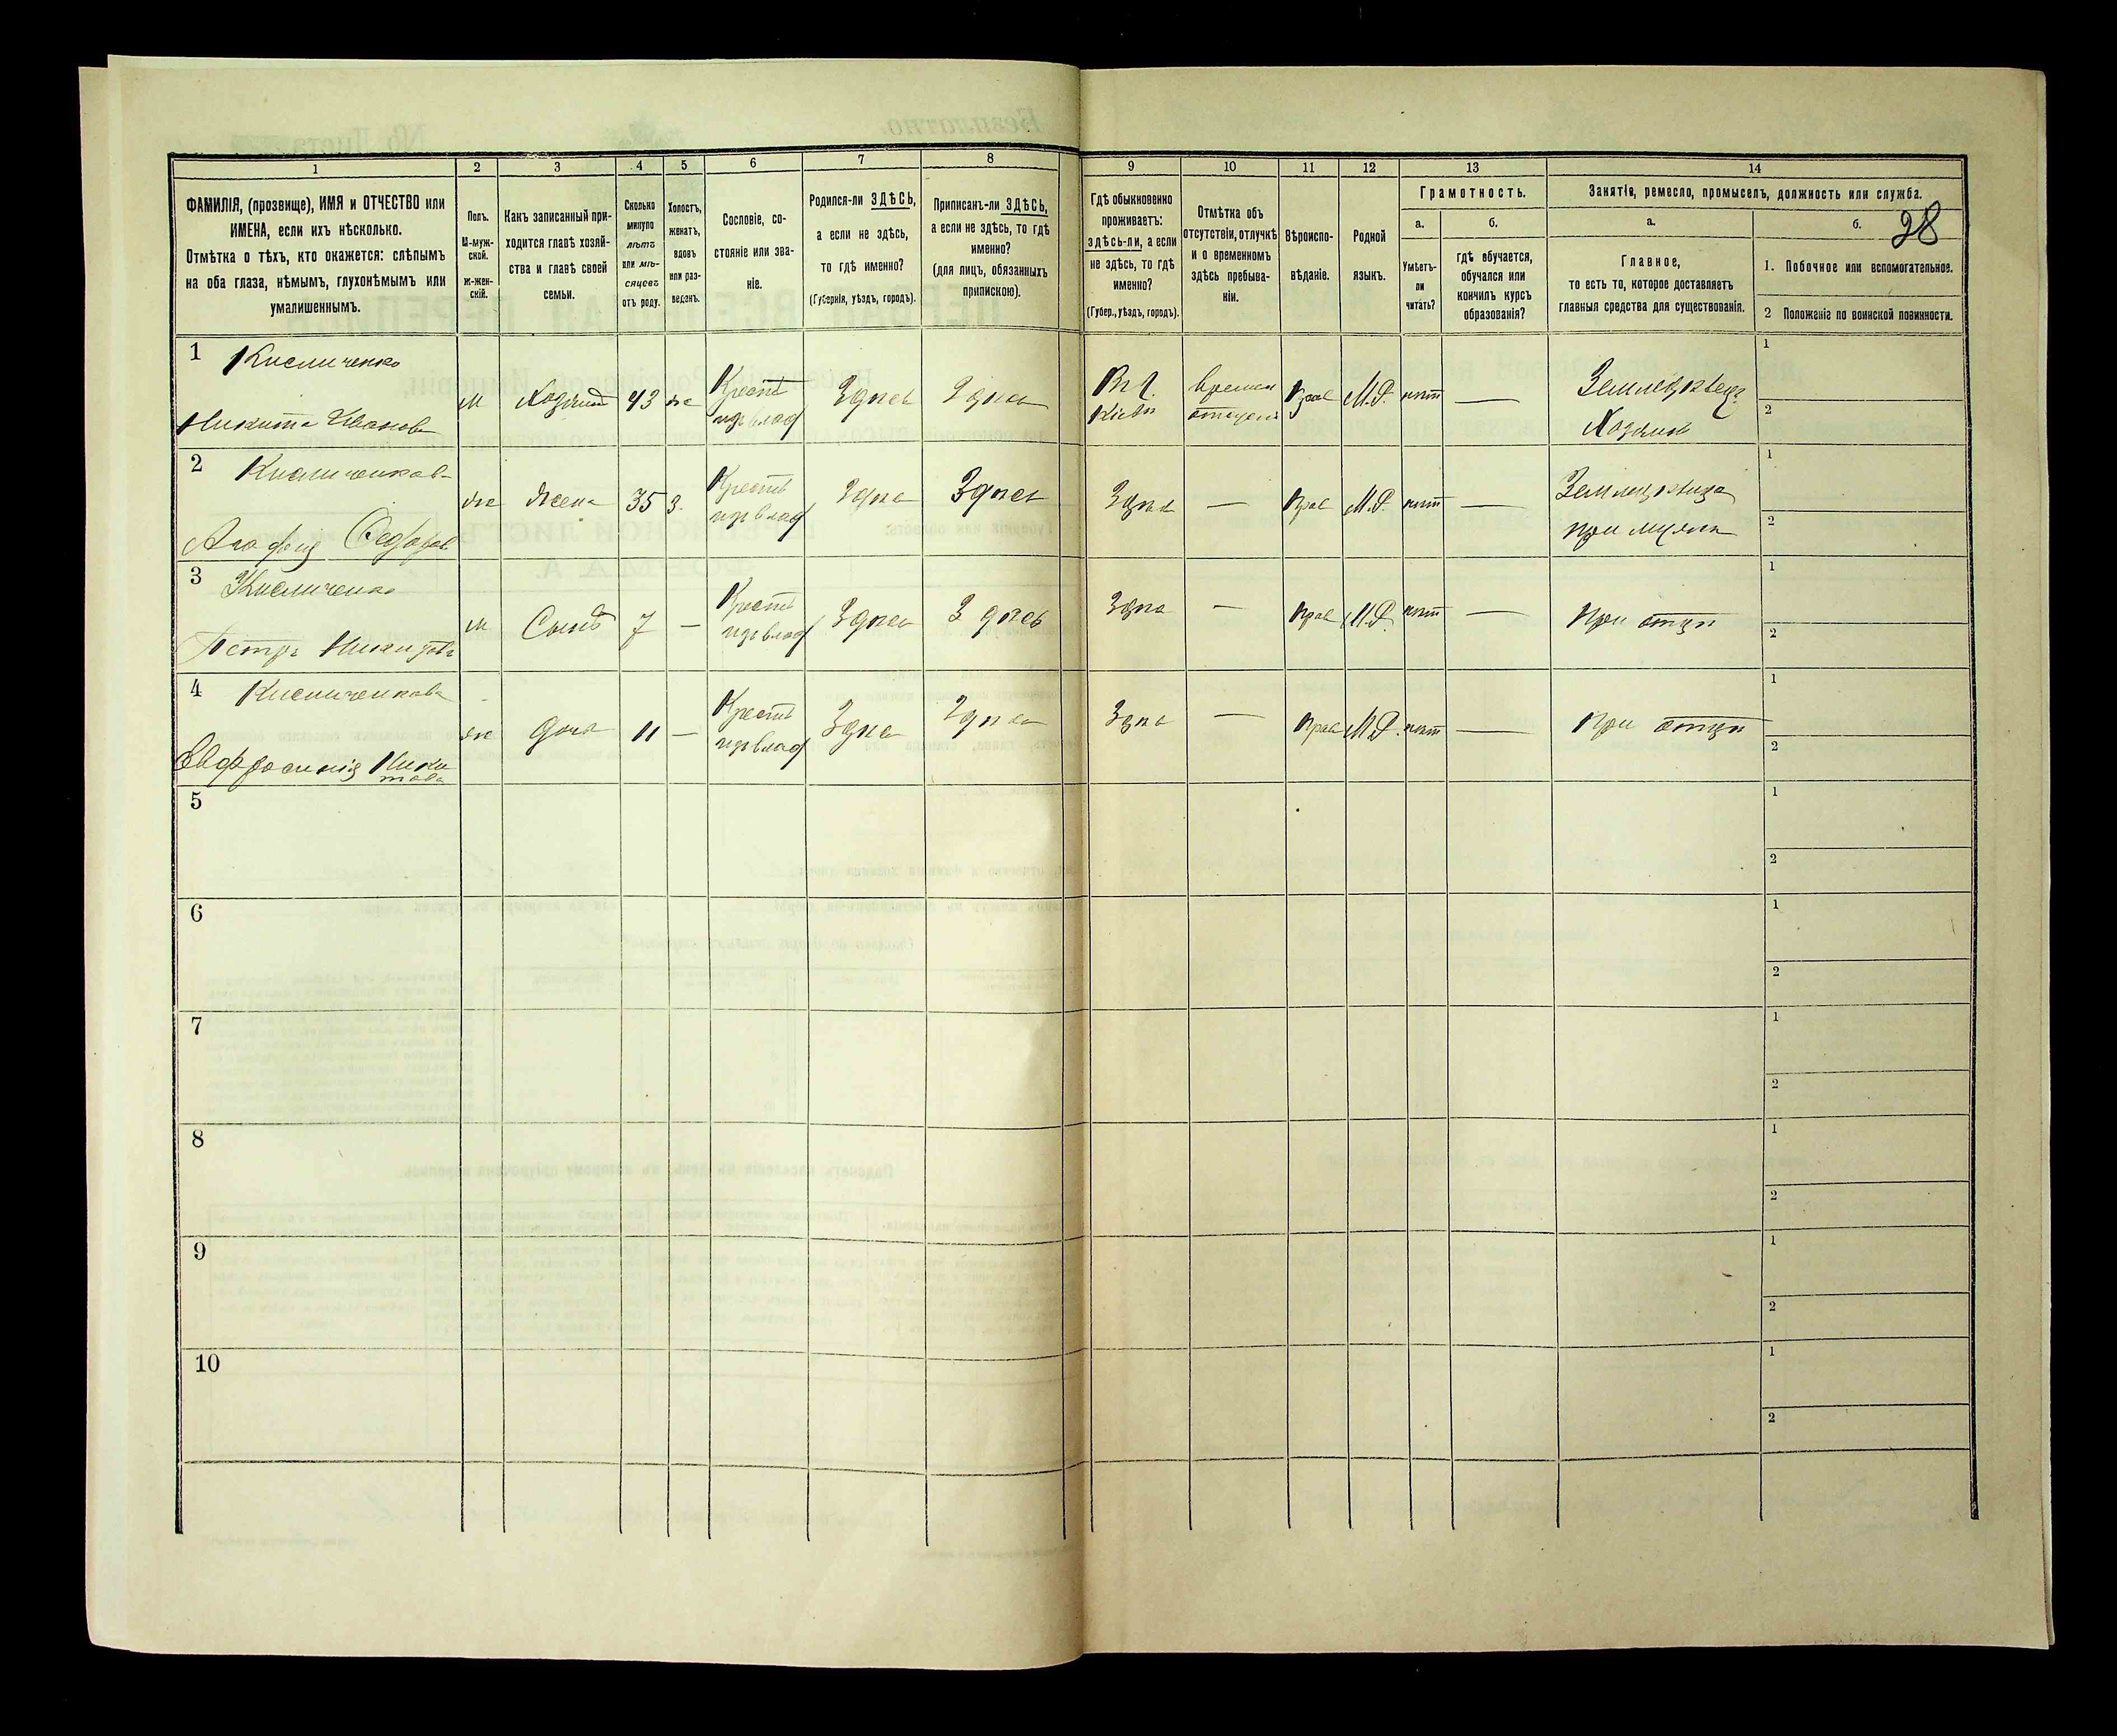 1
2
3
4
5
6
7
8
9
10
11
12
13
14
ФАМИЛІЯ, (прозвище), ИМЯ и ОТЧЕСТВО или
ИМЕНА, если ихъ нѣсколько.
Отмѣтка о тѣхъ, кто окажется: слѣпымъ
на оба глаза, нѣмымъ, глухонѣмымъ или
умалишеннымъ.
Полъ.
М-муж-
ской.
ж-жен-
скій.
Какъ записанный при-
ходится главѣ хозяй-
ства и главѣ своей
семьи.
Сколько
минуло
лѣтъ
или мѣ-
сяцевъ
отъ роду.
Холостъ,
женатъ,
вдовъ
или раз-
веденъ.
Сословіе, со-
стояніе или зва-
ніе.
Родился-ли ЗДѢСЬ,
а если не здѣсь,
то гдѣ именно?
(Губернія, уѣздъ, городъ).
Приписанъ-ли ЗДѢСЬ,
а если не здѣсь, то гдѣ
именно?
(для лицъ, обязанныхъ
припискою).
Гдѣ обыкновенно
проживаетъ:
здѣсь-ли, а если
не здѣсь, то гдѣ
именно?
(Губер., уѣздъ, городъ).
Отмѣтка объ
отсутствіи, отлучкѣ
и о временномъ
здѣсь пребыва-
ніи.
Вѣроиспо-
вѣданіе.
Родной
языкъ.
Грамотность.
а.
Умѣетъ-
ли
читать?
б.
гдѣ обучается,
обучался или
кончилъ курсъ
образованія?
Занятія, ремесло, промыселъ, должность или служба.
а.
Главное,
то есть то, которое доставляетъ
главныя средства для существованія.
б.
28
1. Побочное или вспомогательное.
2 Положеніе по воинской повинности.
1 Кисличенко
Никита Иванов
м
Хозяинъ
43
же
Крест
изъ влад
Здѣсь
Здѣсь
Кіевъ
Прав
М.Р.
нѣтъ
—
Земледѣлецъ
Хозяинъ
1
2
2 Кисличенкова
Агафія Федоров
же
Жена
35
З.
Крест
изъ влад
Здѣсь
Здѣсь
Здѣсь
—
Прав
М.Р.
нѣтъ
—
при мужѣ
1
2
3 Кисличенко
Петръ Никитовъ
м
Сынъ
7
—
Крест
изъ влад
Здѣсь
Здѣсь
Здѣсь
—
Прав
М.Р.
нѣтъ
—
При отцѣ
1
2
4 Кисличенкова
Евфросинія Ники
това
же
Дочь
11
—
Крест
изъ влад
Здѣсь
Здѣсь
Здѣсь
—
Прав
М.Р.
нѣтъ
—
При отцѣ
1
2
5
1
2
6
1
2
7
1
2
8
1
2
9
1
2
10
1
2